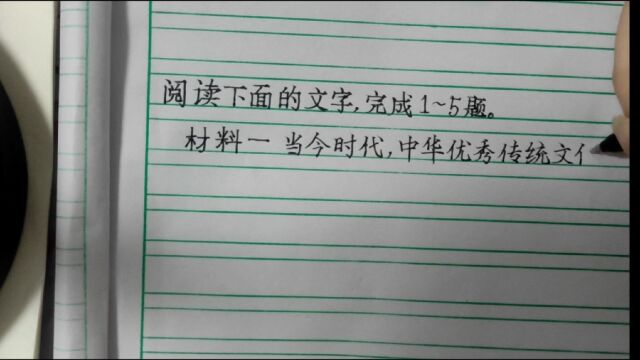 阅读下面的文字,完成1~5题。
材料一 当今时代,中华优秀传统文